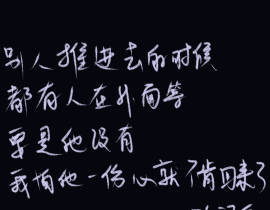 别人推进去的时候
都有人在外面等
要是他没有
我怕他一伤心就不肯回来了